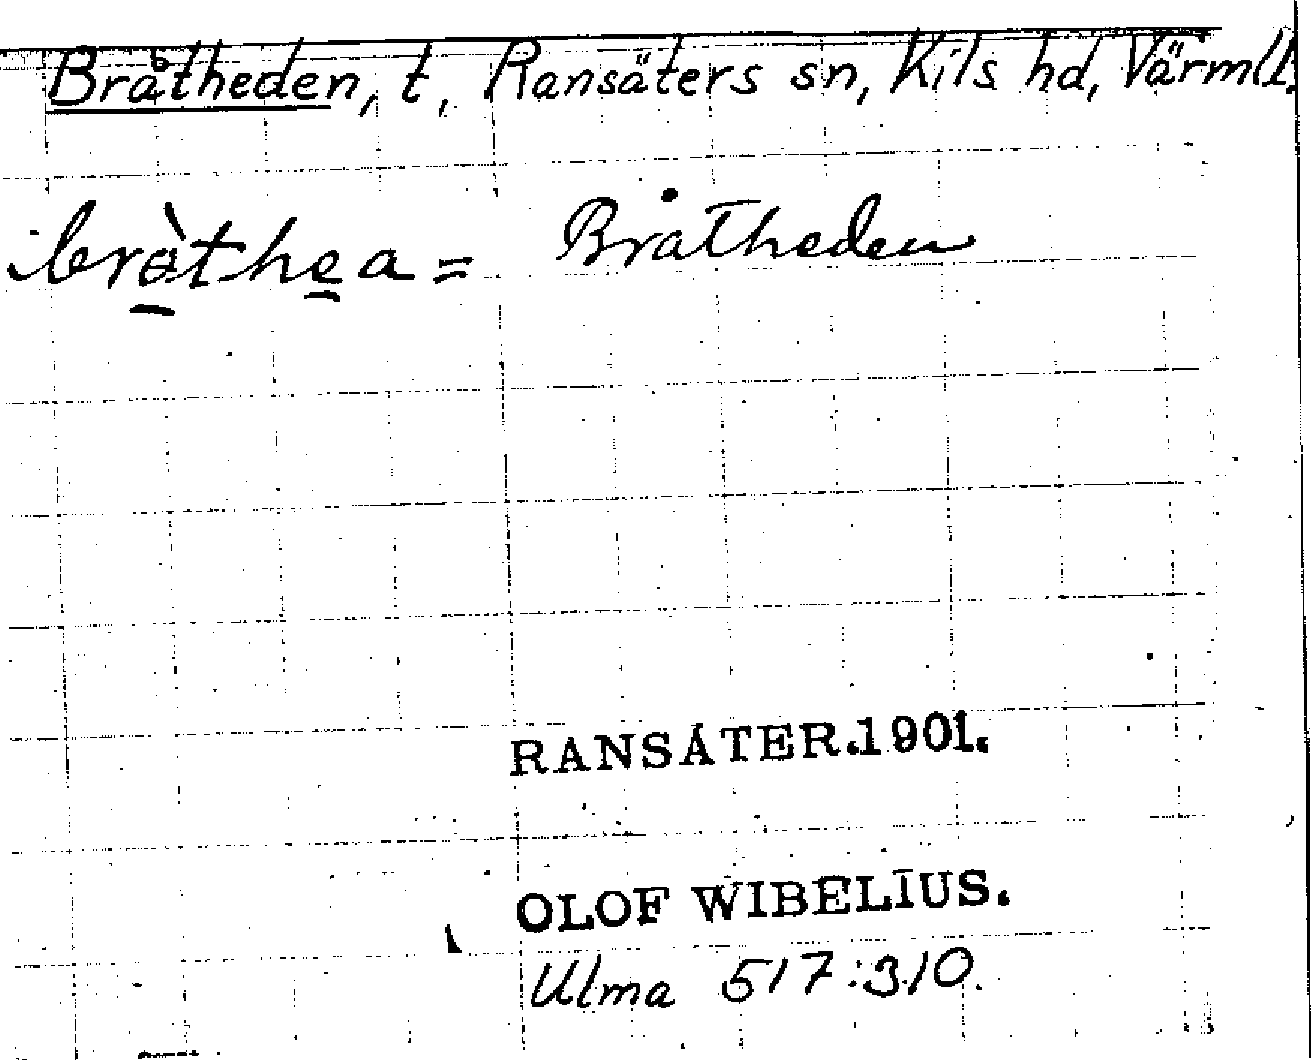 Bråtheden, t, Ransäters sn, Kils hd, Värml.
bròthea = Bråtheden
RANSÄTER.1901.
OLOF WIBELIUS.
Ulma 517:310.